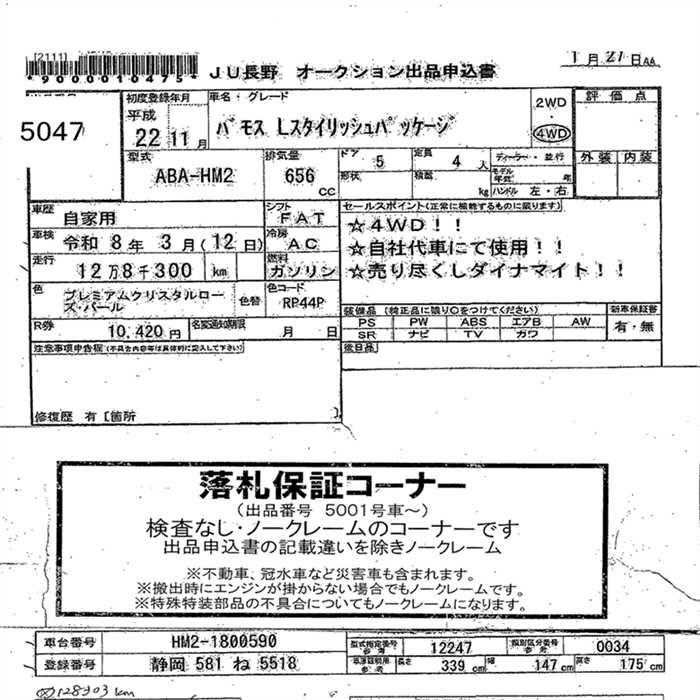 [2111]
*9000010475*
JU長野 オークション出品申込書
1月27日AA
5047
初度登録年月
平成
22 11月
車名・グレード
バモス Lスタイリッシュパッケージ
2WD
4WD
評価点
外装 内装
型式
ABA-HM2
排気量
656
cc
ドア
5
定員
4人
形状
積載
kg
ディーラー・並行
モデル年式 年
ハンドル 左・右
車歴
自家用
シフト
FAT
車検
令和 8年 3月(12日)
冷房
AC
走行
12万8千300 km
燃料
ガソリン
色
プレミアムクリスタルロー
ズ・パール
色替
色コード
RP44P
R券
10,420円
名変通知期限
月 日
セールスポイント(正常に機能するものに限ります)
☆4WD!!
☆自社代車にて使用!!
☆売り尽くしダイナマイト!!
装備品(純正品に限り○をつけてください)
新車保証書
PS PW ABS エアB AW
SR ナビ TV カワ
有・無
後日品
注意事項申告欄(不具合内容等は具体的に記入して下さい)
修復歴 有[箇所 ]
落札保証コーナー
(出品番号 5001号車〜)
検査なし・ノークレームのコーナーです
出品申込書の記載違いを除きノークレーム
※不動車、冠水車など災害車も含まれます。
※搬出時にエンジンが掛からない場合でもノークレームです。
※特殊特装部品の不具合についてもノークレームになります。
車台番号 HM2-1800590
型式指定番号 参考 12247
類別区分番号 参考 0034
登録番号 静岡 581 ね 5518
参考 長さ 339cm 幅 147cm 高さ 175cm
128303 km